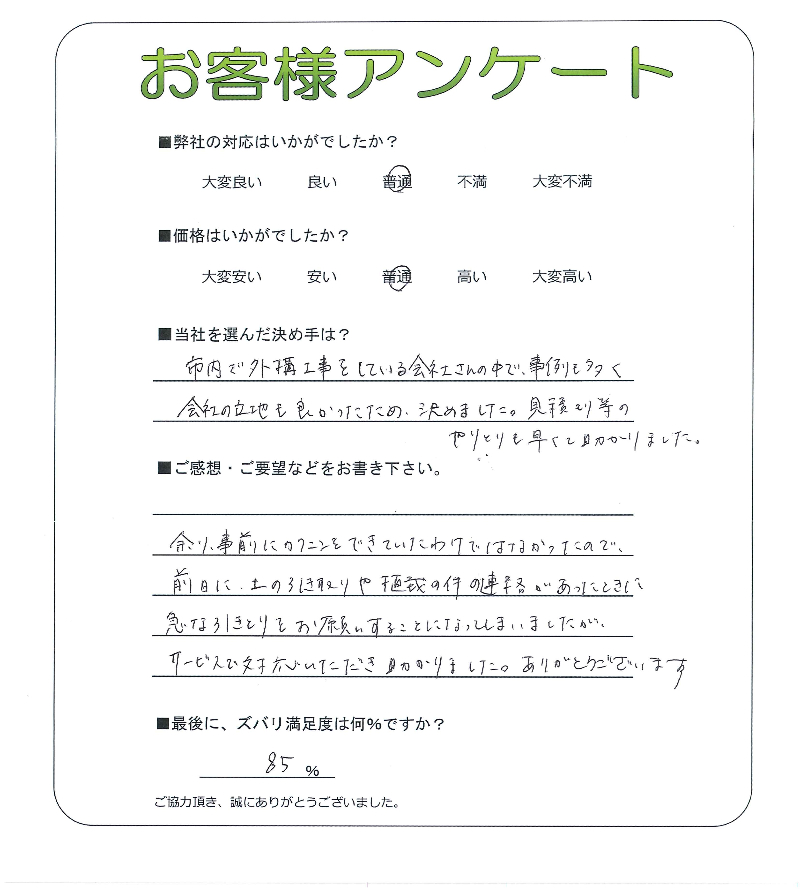 お客様アンケート
■弊社の対応はいかがでしたか？
大変良い 良い 普通 不満 大変不満
■価格はいかがでしたか？
大変安い 安い 普通 高い 大変高い
■当社を選んだ決め手は？
市内で外構工事をしている会社さんの中で、事例も多く
会社の立地も良かったため、決めました。見積もり等の
やりとりも早くて助かりました。
■ご感想・ご要望などをお書き下さい。
余り、事前にカクニンをできていたわけではなかったので、
前日に、土の引き取りや植栽の件の連絡があったときに
急な引きとりをお願いすることになってしまいましたが、
サービスで対応いただき助かりました。ありがとうございます
■最後に、ズバリ満足度は何%ですか？
85 %
ご協力頂き、誠にありがとうございました。